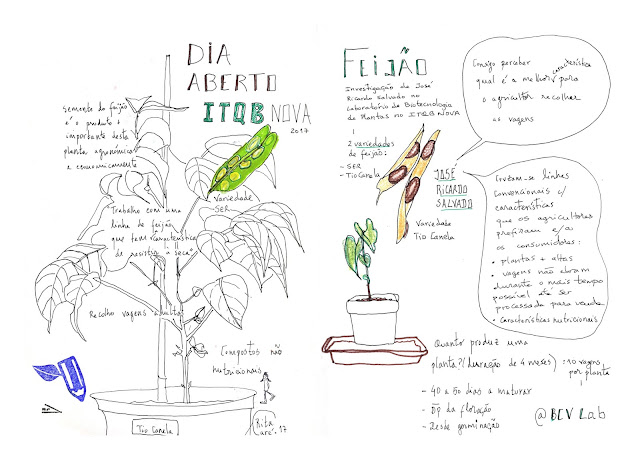 DIA
ABERTO
ITQB NOVA
2017
Semente do feijão
é o produto +
importante desta
planta, agronómica
e economicamente
Variedade
SER
Trabalho com uma
linha de feijão
que tem característica
de resistir à seca
Recolho vagens adultas
Compostos não
nutricionais
Tio Canela
Rita
Caré. 17
FEIJÃO
Investigação de José
Ricardo Salvado no
Laboratório de Biotecnologia
de Plantas no ITQB NOVA
2 variedades
de feijão:
- SER
- Tio Canela
JOSÉ
RICARDO
SALVADO
Variedade
Tio Canela
Consigo perceber
qual é a melhor característica para
o agricultor recolher
as vagens
convencionais c/
características
que os agricultores
precisam e/a
os consumidores:
• plantas + altas
• vagens não abram
durante o mais tempo
possível até ser
processada para venda
• características nutricionais
Quanto produz uma
planta? (duração de 4 meses) = 10 vagens
por planta
- 40 a 50 dias a maturar
da floração
- Desde germinação
@BCV Lab